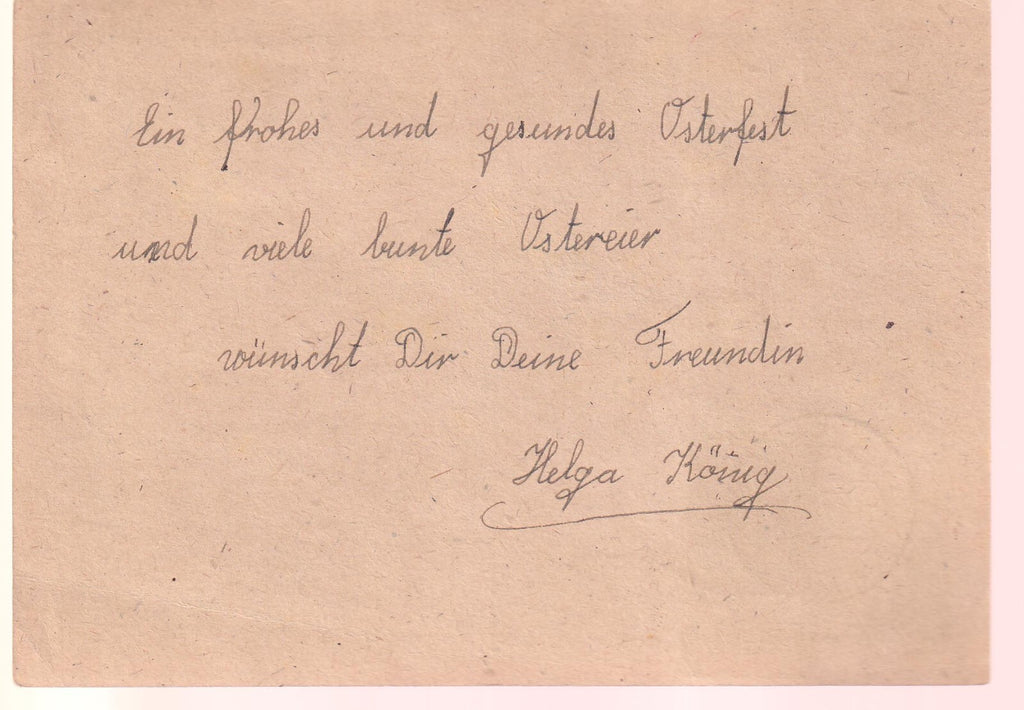 Ein frohes und gesundes Osterfest
und viele bunte Ostereier
wünscht Dir Deine Freundin
Helga König